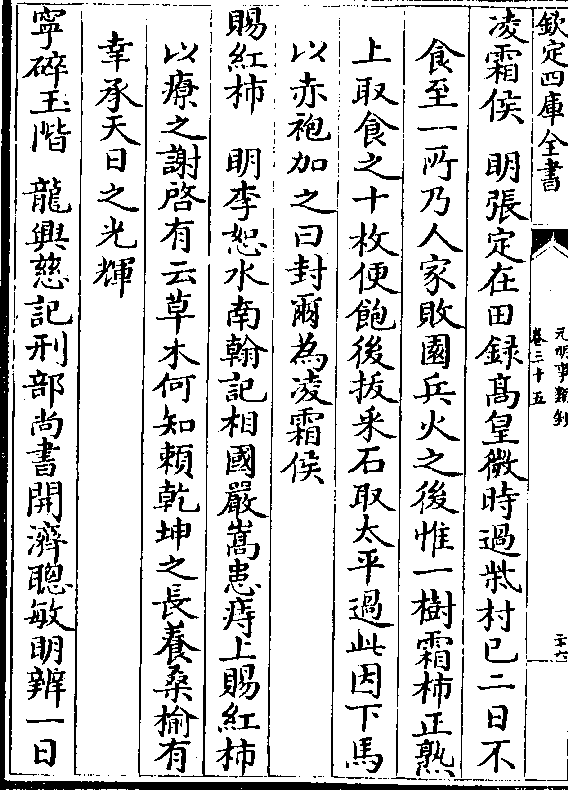 欽定四庫全書
元明事類鈔
卷三十五
二十六
凌霜侯　明張定在田録髙皇微時過柴村已二日不
食至一所乃人家敗園兵火之後惟一樹霜柿正熟
上取食之十枚便飽後拔采石取太平過此因下馬
以赤袍加之曰封爾為凌霜侯
賜紅柿　明李恕水南翰記相國嚴嵩患痔上賜紅柿
以療之謝啓有云草木何知賴乾坤之長養桑榆有
幸承天日之光輝
寧碎玉階　龍興慈記刑部尚書開濟聰敏明辨一日